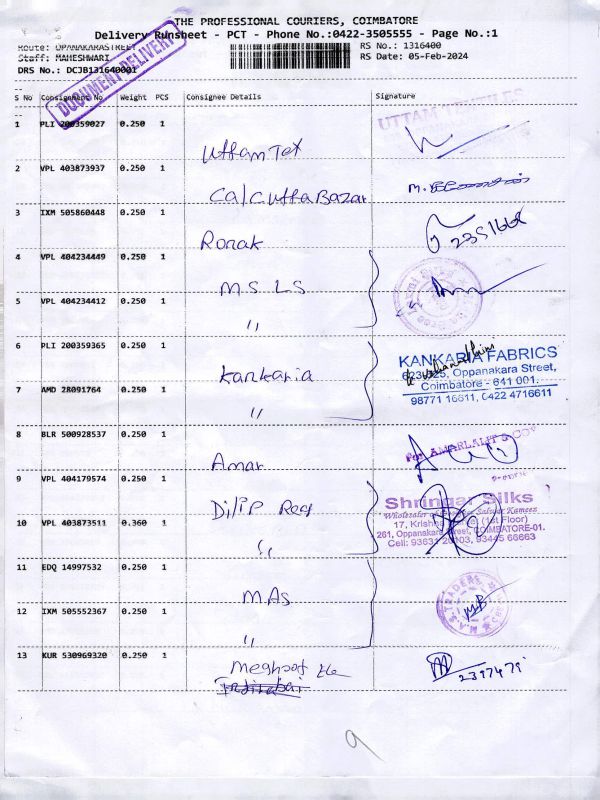 THE PROFESSIONAL COURIERS, COIMBATORE
Delivery Runsheet - PCT - Phone No.:0422-3505555 - Page No.:1
Route: OPANAKARASTREET RS No.: 1316400
Staff: MAHESHWARI RS Date: 05-Feb-2024
DRS No.: DCJB131640001
DOCUMENT DELIVERY
S No Consignment No Weight PCS Consignee Details Signature
UTTAM TEXTILES
1 PLI 200359027 0.250 1
Uttam Tex
2 VPL 403873937 0.250 1
Calcutta Bazar
3 IXM 505860448 0.250 1
Ronak 2351668
4 VPL 404234449 0.250 1
MS LS
5 VPL 404234412 0.250 1
"
6 PLI 200359365 0.250 1
KANKARIA FABRICS
623/625, Oppanakara Street,
Kankaria
Coimbatore - 641 001.
7 AMD 28091764 0.250 1
98771 16611, 0422 4716611
"
8 BLR 500928537 0.250 1
For AMARLALIT & CO
Amar
9 VPL 404179574 0.250 1
Shringar Silks
Dilip Reg
Wholesaler Salwar Kameez
10 VPL 403873511 0.360 1
17, Krishna (1st Floor)
261, Oppanakara Street, COIMBATORE-01.
"
93445 66663
11 EDQ 14997532 0.250 1
M.A.S. TRADERS CBE
MAs
MB
12 IXM 505552367 0.250 1
"
13 KUR 530969320 0.250 1
2397479
9